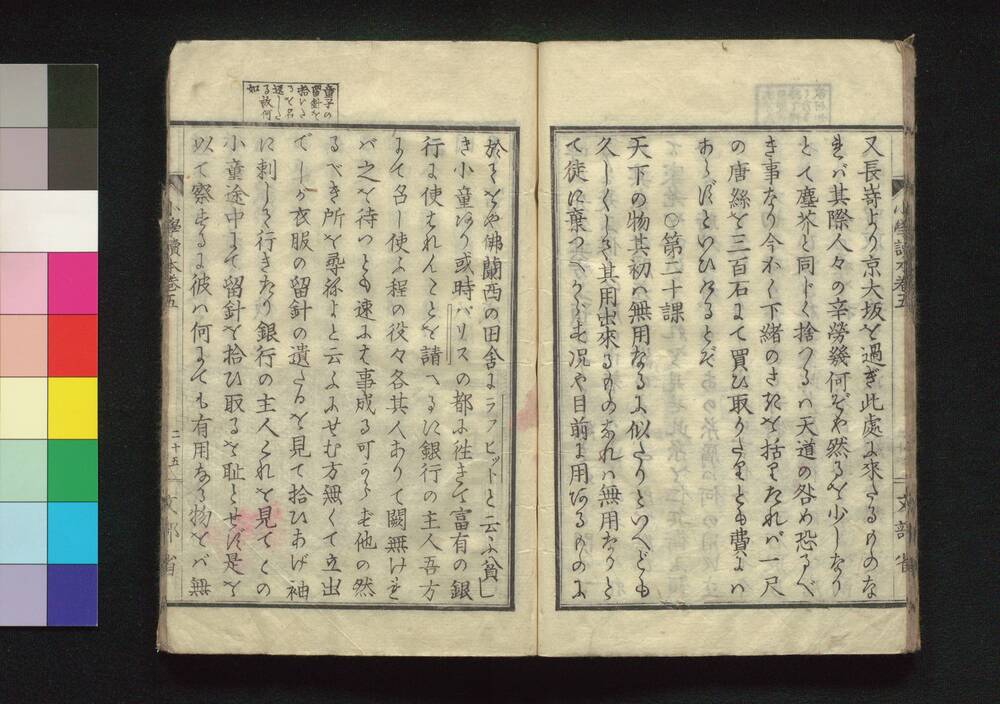 又長崎より京大坂を過ぎ此處に來たるものな
れバ其際人々の辛勞幾何ぞや然るを少しなり
とて塵芥と同じく捨つるハ天道の咎め恐るべ
き事なり今かく下緒のさきを括りたれバ一尺
の唐絲を三百石にて買ひ取りたりとも費にハ
あらずといひけるとぞ
○第二十課
天下の物其初ハ無用なるに似たりといへども
久しくして其用出來るものなれハ無用なりと
て徒に棄つべからず況や目前に用ゐるものに
小學讀本卷五
文部省
童子の
留針を
拾ひた
るを名
還した
る故何
如
於てをや佛蘭西の田舎にラフヒットと云ふ貧し
き小童あり或時パリスの都に徃きて富有の銀
行に使はれんことを請へるに銀行の主人吾方
にて召し使ふ程の役々各其人ありて闕無けれ
バ之を待つとも速に其事成る可からず他の然
るべき所を尋ねよと云ふにせむ方無くて立出
でしが衣服の留針の遺たるを見て拾ひあげ袖
に刺して行きたり銀行の主人これを見てこの
小童途中にて留針を拾ひ取るを耻とせず是を
以て察するに彼ハ何にても有用なる物をバ無
小學讀本卷五
二十五
文部省